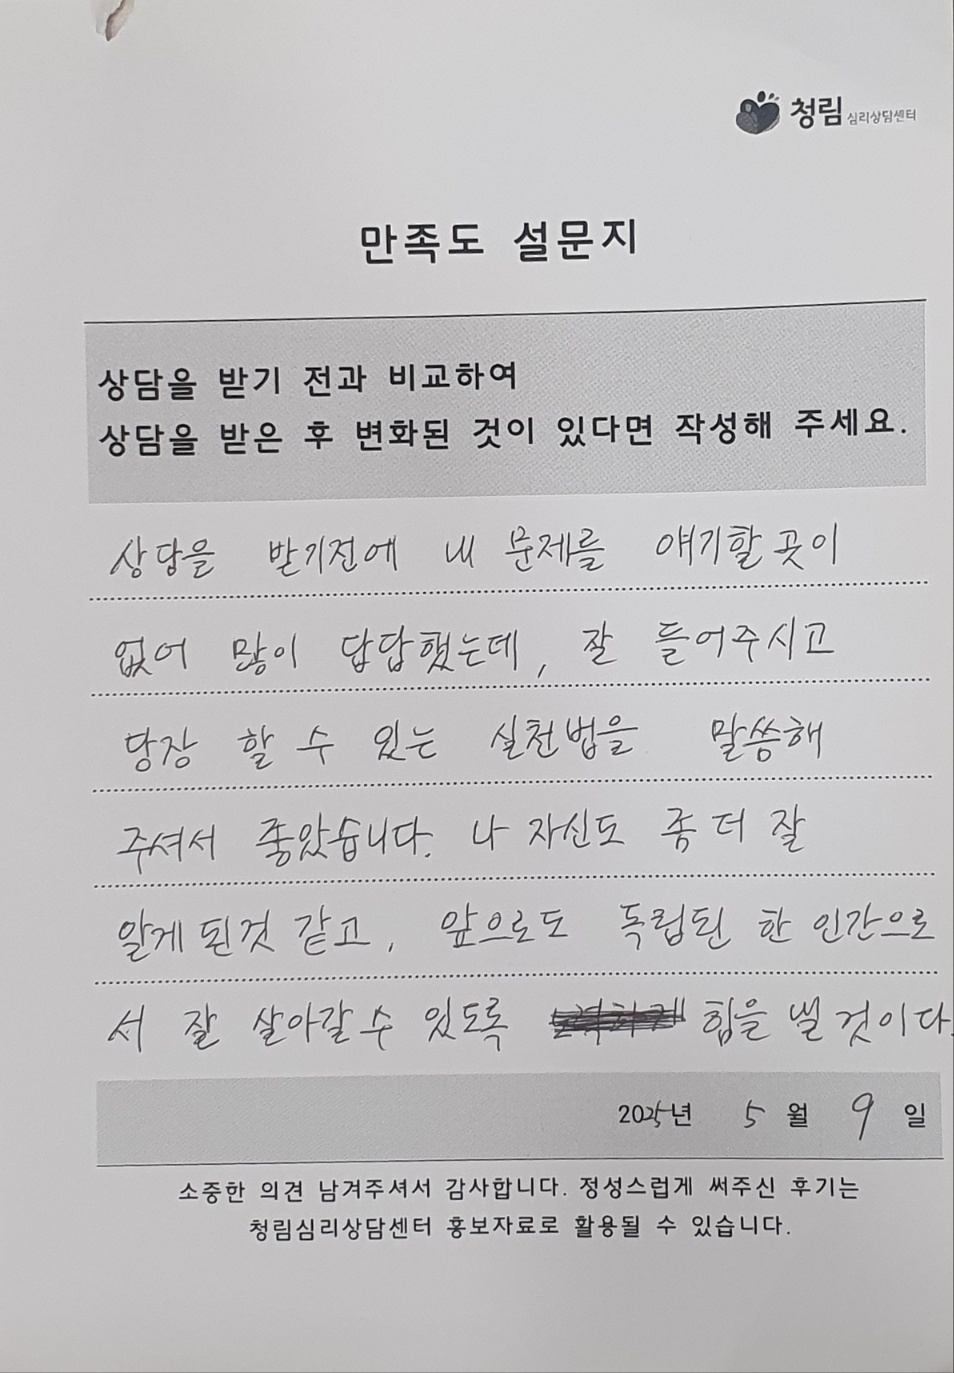 청림 심리상담센터
만족도 설문지
상담을 받기 전과 비교하여
상담을 받은 후 변화된 것이 있다면 작성해 주세요.
상담을 받기전에 내 문제를 얘기할 곳이
없어 많이 답답했는데, 잘 들어주시고
당장 할 수 있는 실천법을 말씀해
주셔서 좋았습니다. 나 자신도 좀 더 잘
알게 된것 같고, 앞으로도 독립된 한 인간으로
서 잘 살아갈 수 있도록 힘을 낼 것이다.
2025년 5 월 9 일
소중한 의견 남겨주셔서 감사합니다. 정성스럽게 써주신 후기는
청림심리상담센터 홍보자료로 활용될 수 있습니다.